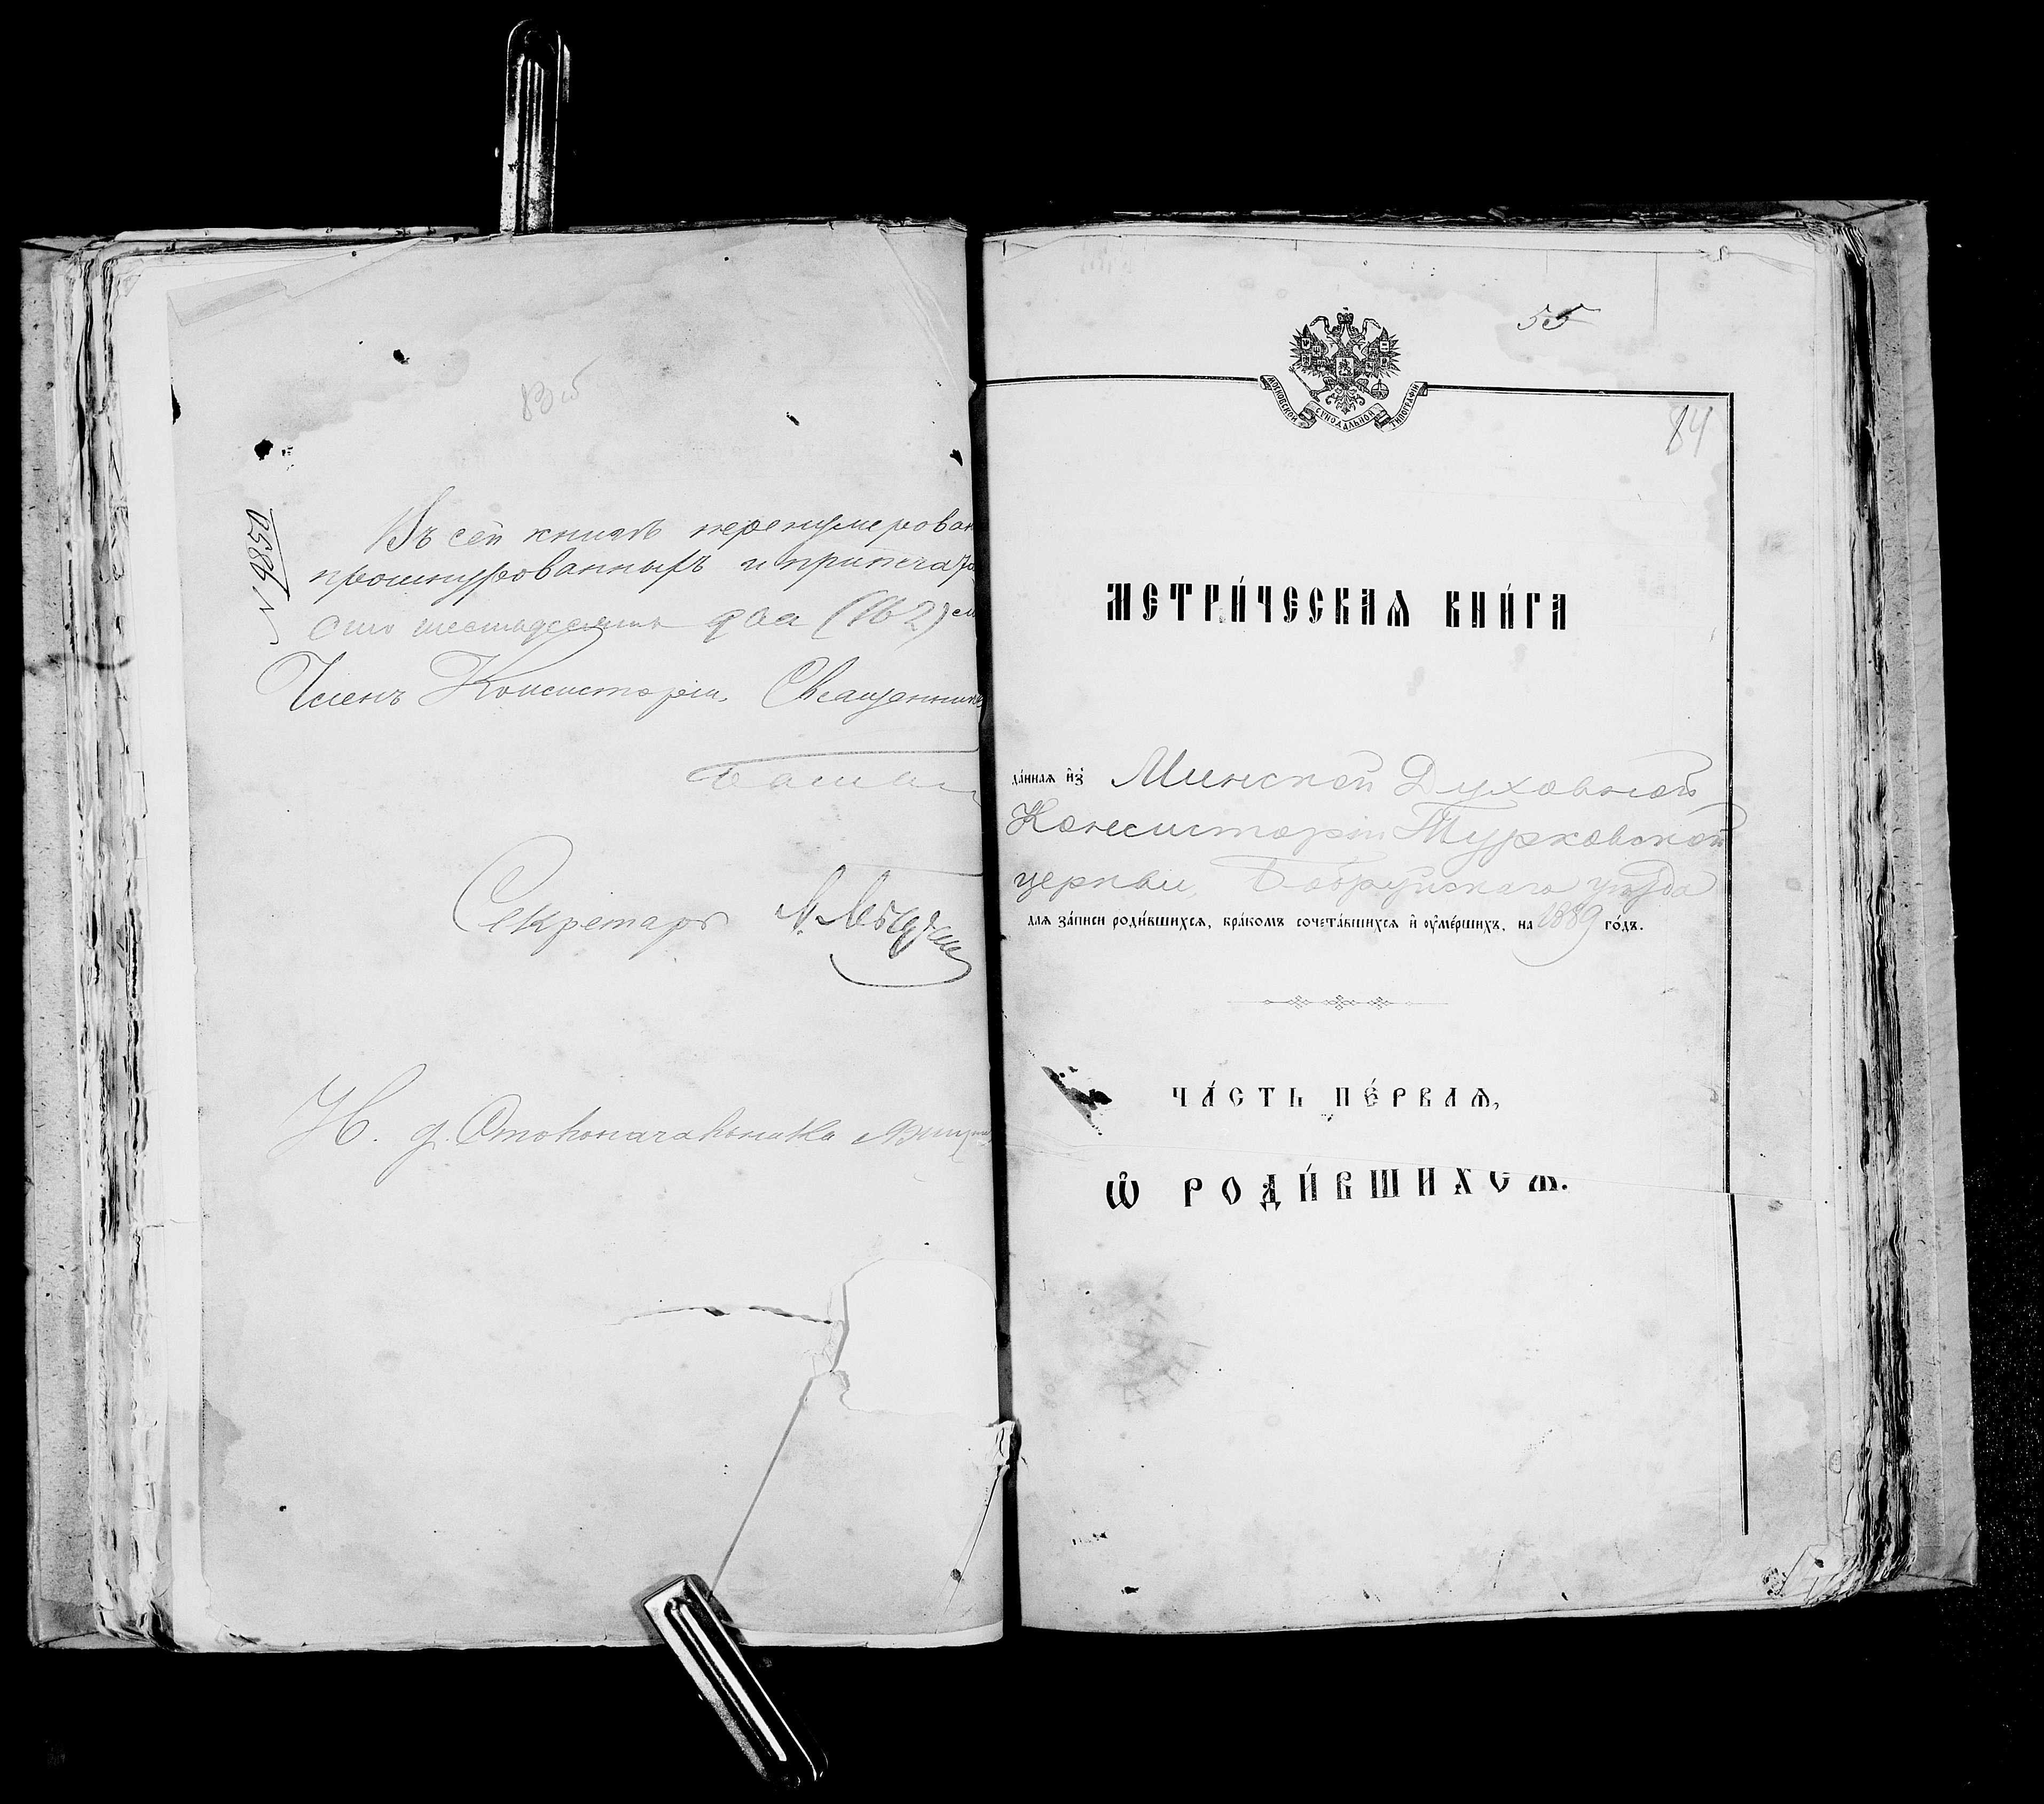 № 9850
Въ сей книгѣ перенумерован
прошнурованныхъ и припечата
сто шестьдесятъ два (162)
Членъ Консисторіи, Священник
Секретарь
И. д. Столоначальника
55
МОСКОВСКОЙ СѴНОДАЛЬНОЙ ТИПОГРАФІИ
84
МЕТРИ́ЧЕСКАѦ КНИ́ГА
да́ннаѧ и҆з̾ Минской Духовной
Консисторіи Турковской
церкви, Бобруйскаго уѣзда
длѧ за́писи роди́вшихсѧ, бра́комъ сочета́вшихсѧ и҆ ᲂу҆ме́ршихъ, на 1889 го́дъ.
ЧА́СТЬ ПЕ́РВАѦ,
Ѽ РОДИ́ВШИХСѦ.